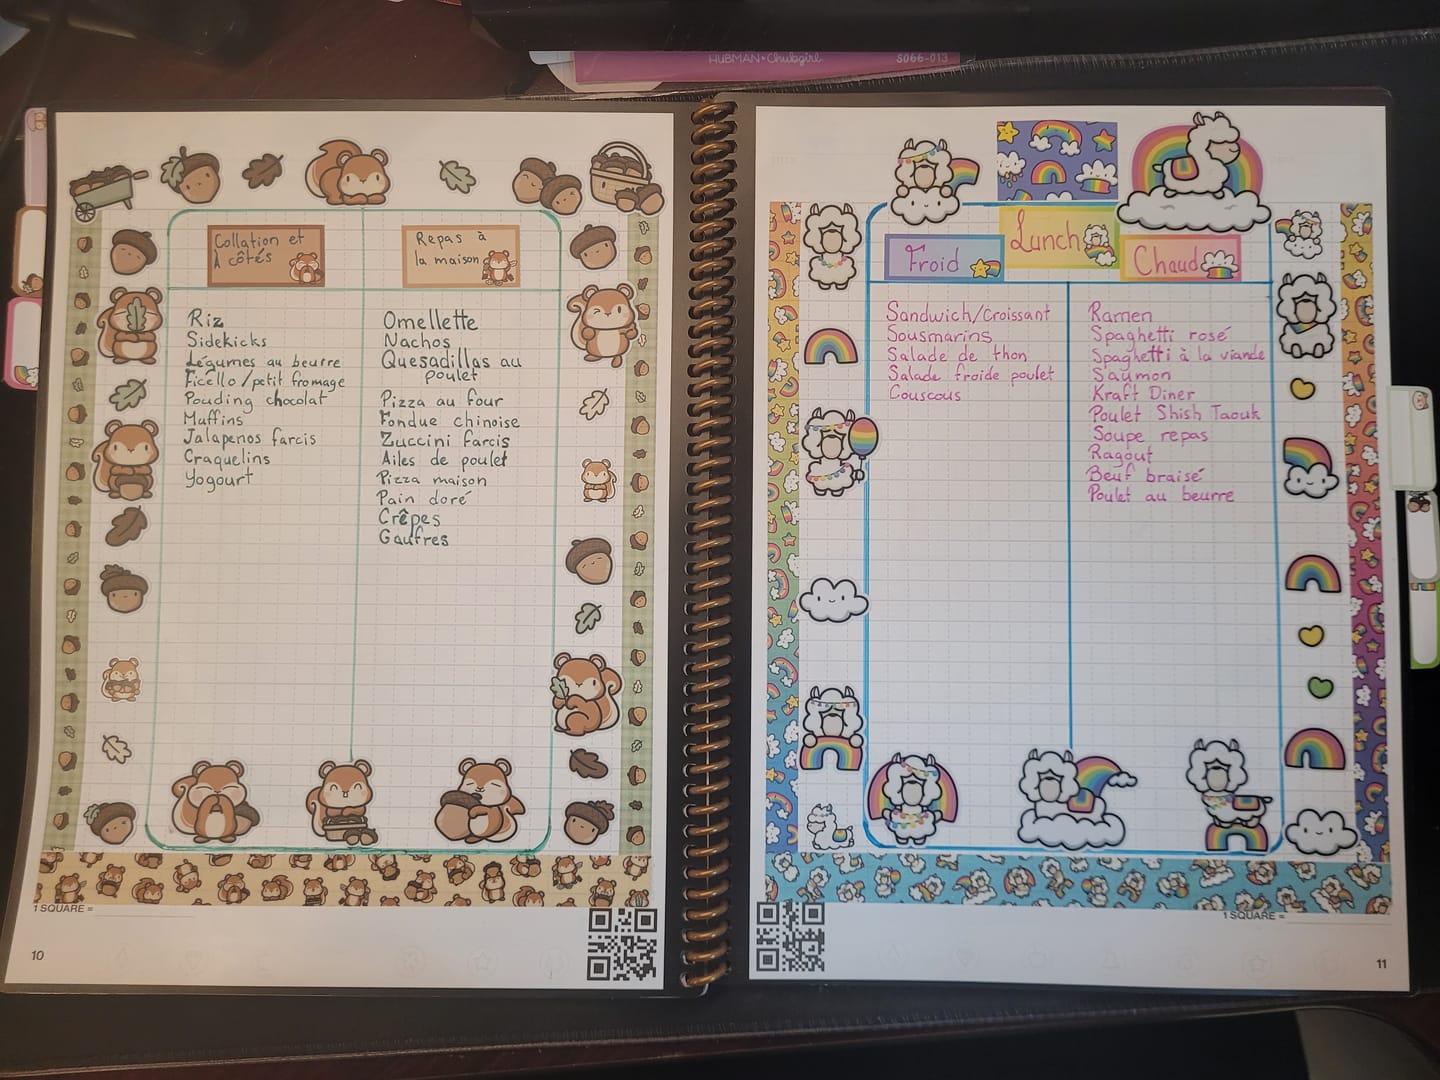 HUBMAN • Chubgirl
S066-013
Collation et
À côtés
Riz
Sidekicks
Légumes au beurre
Ficello/petit fromage
Pouding chocolat
Muffins
Jalapenos farcis
Craquelins
Yogourt
Repas à
la maison
Omellette
Nachos
Quesadillas au
poulet
Pizza au four
Fondue chinoise
Zuccini farcis
Ailes de poulet
Pizza maison
Pain doré
Crêpes
Gaufres
1 SQUARE =
10
Lunch
Froid
Sandwich/Croissant
Sousmarins
Salade de thon
Salade froide poulet
Couscous
Chaud
Ramen
Spaghetti rosé
Spaghetti à la viande
Saumon
Kraft Diner
Poulet Shish Taouk
Soupe repas
Ragoût
Beuf braisé
Poulet au beurre
1 SQUARE =
11